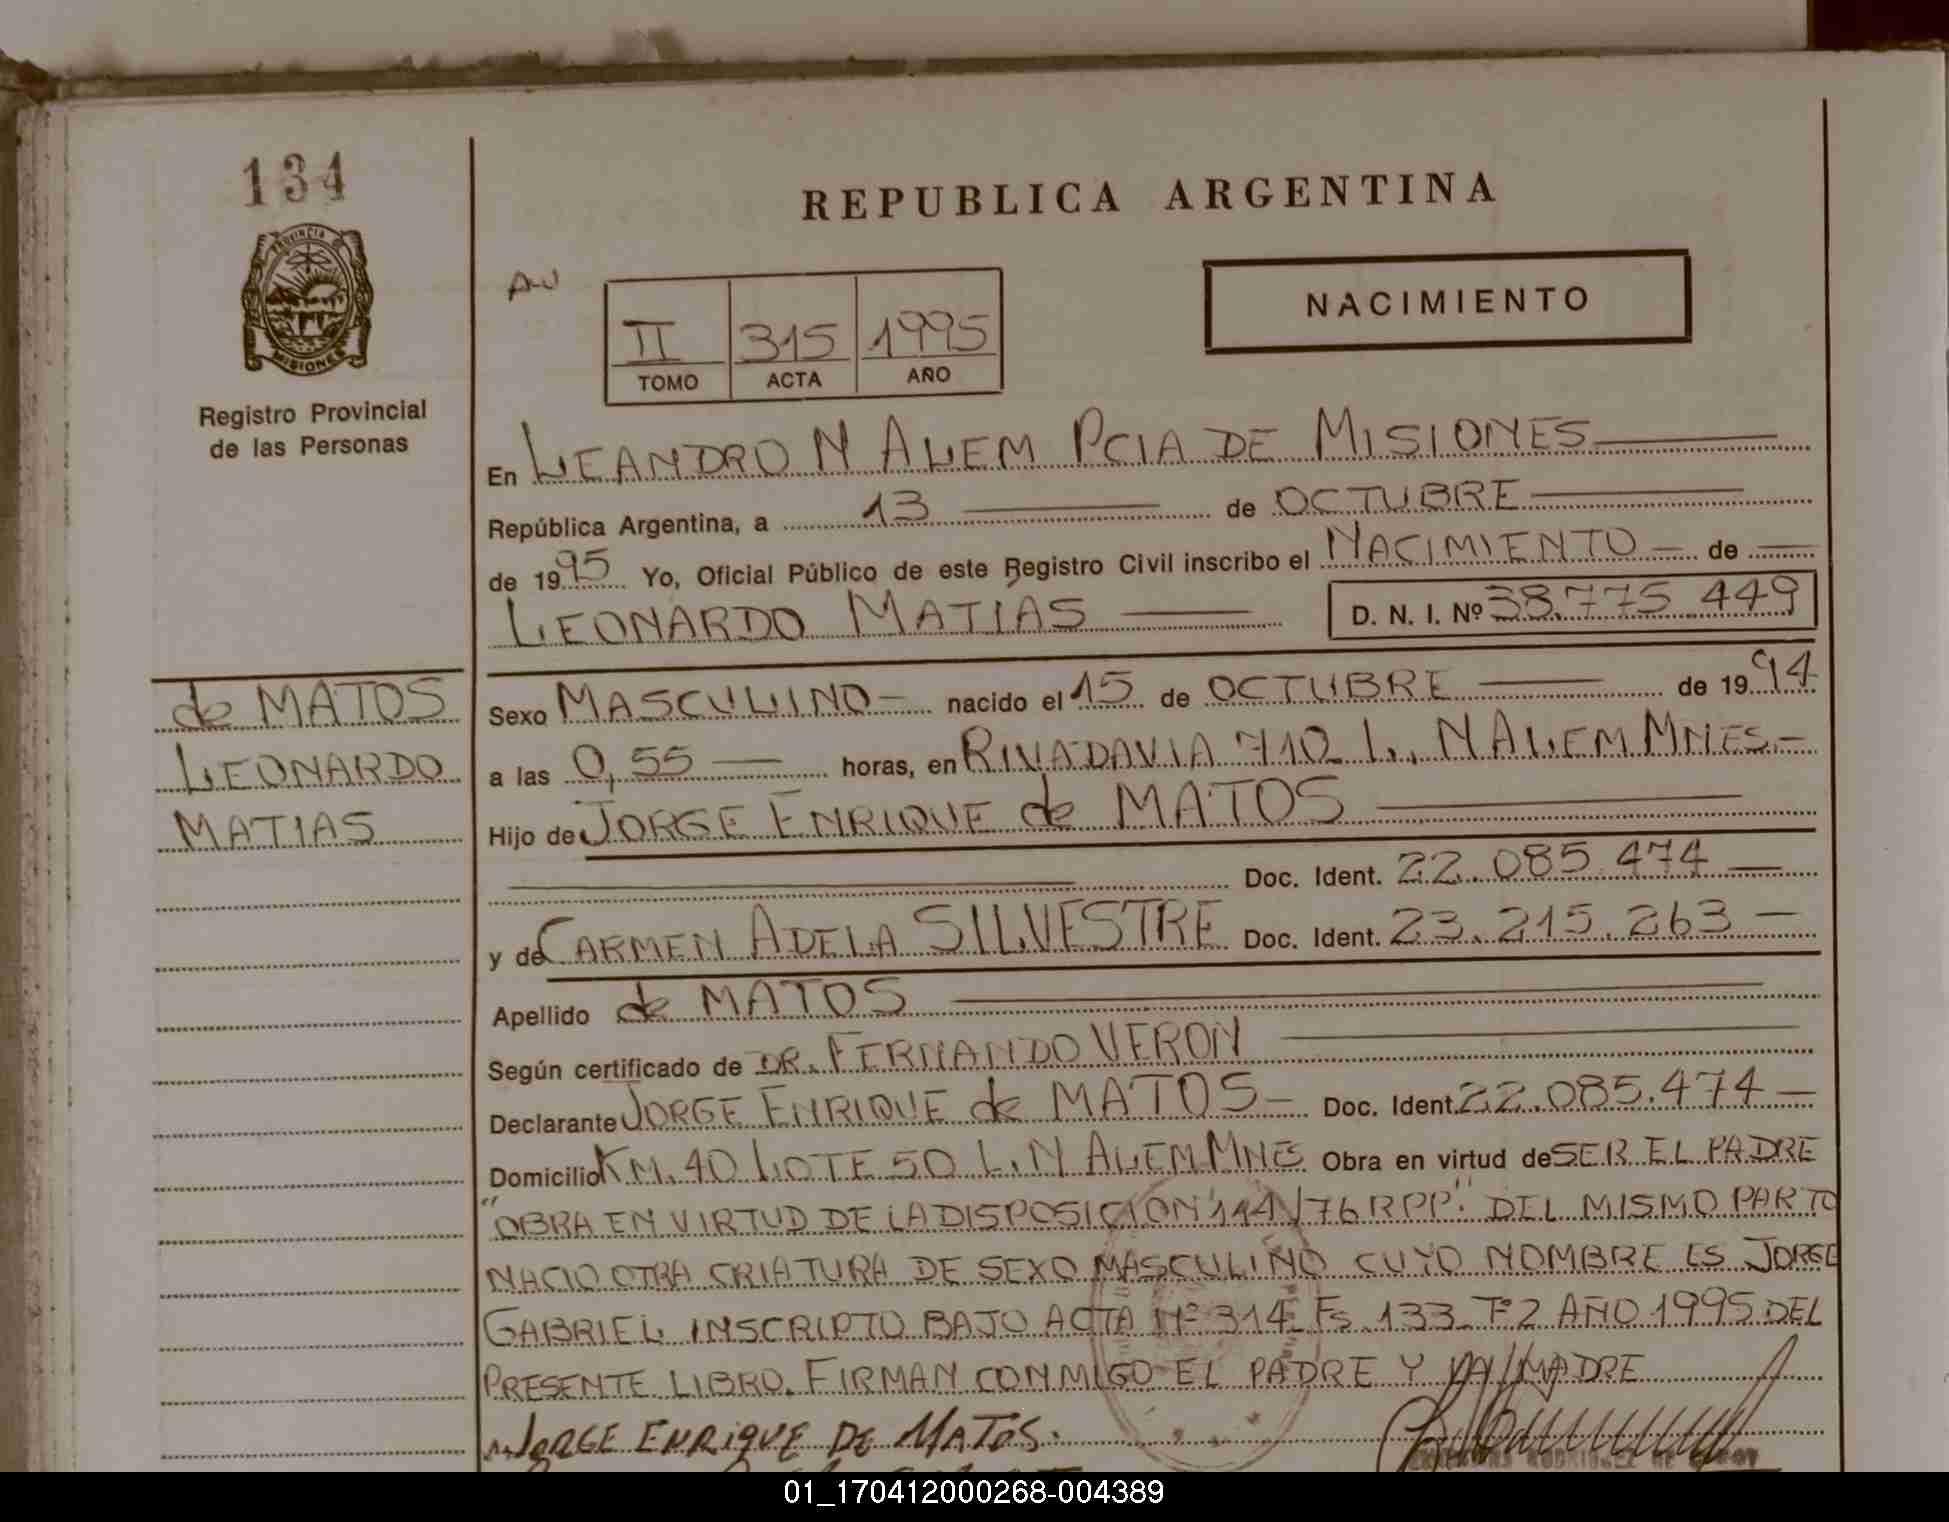 134
REPUBLICA ARGENTINA
PROVINCIA
MISIONES
Registro Provincial
de las Personas
II 315 1995
TOMO ACTA AÑO
NACIMIENTO
En LEANDRO N ALEM PCIA DE MISIONES
República Argentina, a 13 de OCTUBRE
de 1995 Yo, Oficial Público de este Registro Civil inscribo el NACIMIENTO de
LEONARDO MATÍAS D. N. I. Nº 38.775.449
de MATOS
LEONARDO
MATIAS
Sexo MASCULINO nacido el 15 de OCTUBRE de 1994
a las 0,55 horas, en RIVADAVIA 710 L. N ALEM MNES.
Hijo de JORGE ENRIQUE de MATOS
Doc. Ident. 22.085.474
y de CARMEN ADELA SILVESTRE Doc. Ident. 23.215.263
Apellido de MATOS
Según certificado de DR. FERNANDO VERON
Declarante JORGE ENRIQUE de MATOS Doc. Ident. 22.085.474
Domicilio KM. 40 LOTE 50 L. N ALEM MNES Obra en virtud de SER EL PADRE
"OBRA EN VIRTUD DE LA DISPOSICION 144/76 RPP". DEL MISMO PARTO
NACIO OTRA CRIATURA DE SEXO MASCULINO CUYO NOMBRE ES JORGE
GABRIEL INSCRIPTO BAJO ACTA Nº 314 Fs. 133 Tº 2 AÑO 1995 DEL
PRESENTE LIBRO. FIRMAN CONMIGO EL PADRE Y LA MADRE
JORGE ENRIQUE DE MATOS.
01_170412000268-004389